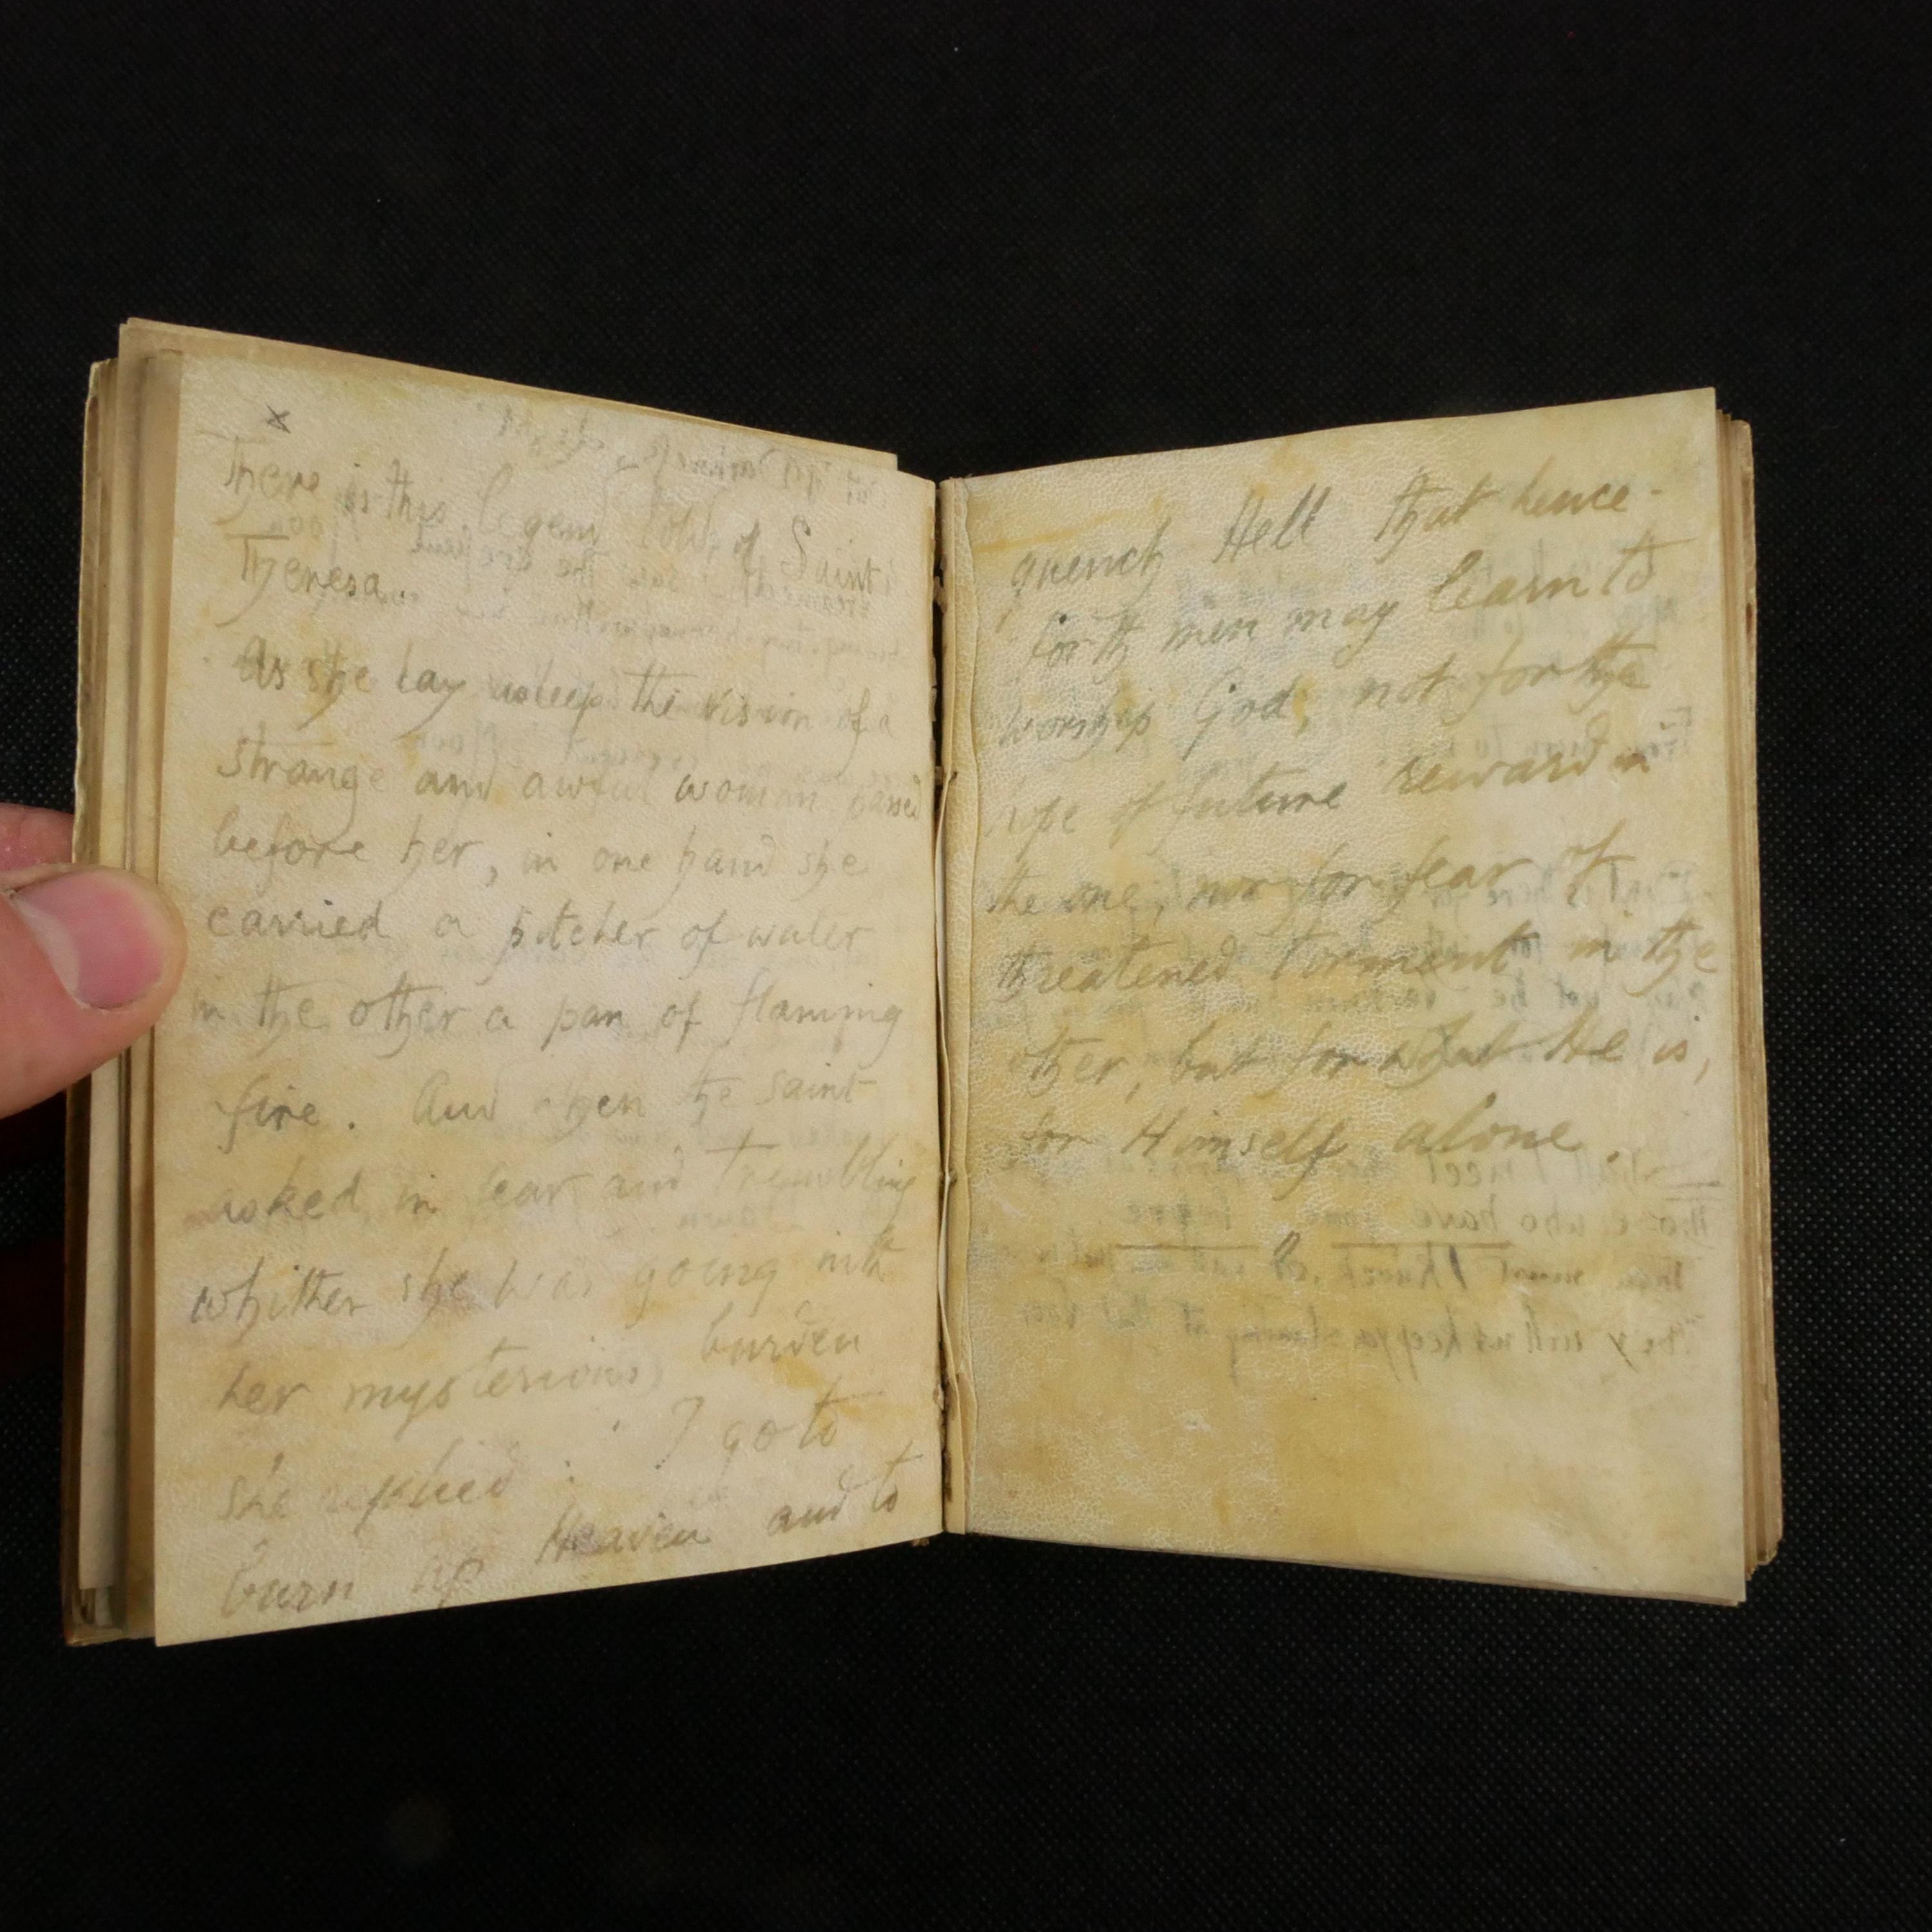 x
There is this legend told of Saint
Theresa.
As she lay asleep the vision of a
strange and awful woman passed
before her, in one hand she
carried a pitcher of water
in the other a pan of flaming
fire. And when the saint
asked in fear and trembling
whither she was going with
her mysterious burden
she replied: I go to
burn up Heaven and to
quench Hell that hence-
forth men may learn to
worship God, not for the
hope of future reward in
the one, nor for fear of
threatened torment in the
other, but for what He is,
for Himself alone.